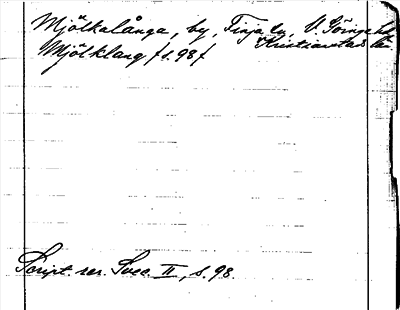 Mjölkalånga, by, Finja sn, V. Göinge hd
Kristianstads län
Mjölklang f s. 98 f
Script. rer. Svec. II, s. 98.